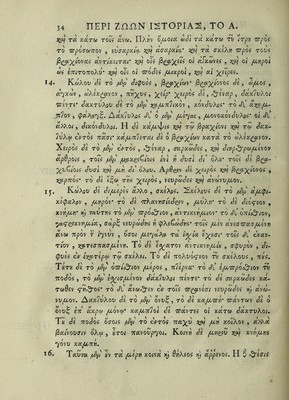 34 ΠΕΡΙ ΖΩΩΝ ΙΣΤΟΡΙΑΣ, ΤΟ Α.
καὶ τὰ κάτω τοῖς ἄνω. Πλὴν ὅμοια ὡδὶ τὰ κάτω τοῦ ἤτρου πρὸς
τὸ πρόσωπον, εὐσαρκίᾳ καὶ ἀσαρκίᾳ· καὶ τὰ σκέλη πρὸς τοὺς
βραχίονας ἀντίκειται· καὶ οἷς βραχεῖς οἱ ἀγκῶνες, καὶ οἱ μηροὶ
ὡς ἐπιτοπολύ· καὶ οἷς οἱ πόδες μικροὶ, καὶ αἱ χεῖρες.
14. Κώλου δὲ τὸ μὲν διφυὲς βραχίων· βραχίονος δὲ, ὦμος,
ἀγκὼν, ὠλέκρανον, πῆχυς, χείρ· χειρὸς δὲ, θέναρ, δάκτυλοι
πέντε· δακτύλου δὲ τὸ μὲν καμπτικὸν, κόνδυλος· τὸ δ' ἄκαμ-
πτον, φάλαγξ. Δάκτυλος δ' ὁ μὲν μέγας, μονοκόνδυλος· οἱ δ'
ἄλλοι, δικόνδυλοι. Ἡ δὲ κάμψις καὶ τῷ βραχίονι καὶ τῷ δακ-
τύλῳ ἐντὸς πᾶσι· κάμπτεται δὲ ὁ βραχίων κατὰ τὸ ὠλέκρανον.
Χειρὸς δὲ τὸ μὲν ἐντὸς, θέναρ, σαρκῶδες, καὶ διῃρημένον
ἄρθροις, τοῖς μὲν μακροβίοις ἑνὶ ἢ δυσὶ δι' ὅλου· τοῖς δὲ βρα-
χυβίοις δυσὶ καὶ μὴ δι' ὅλου. Ἄρθρον δὲ χειρὸς καὶ βραχίονος,
καρπός· τὸ δὲ ἔξω τῆς χειρὸς, νευρῶδες καὶ ἀνώνυμον.
15. Κώλου δὲ διμερὲς ἄλλο, σκέλος. Σκέλους δὲ τὸ μὲν ἀμφι-
κέφαλον, μηρός· τὸ δὲ πλανησίεδρον, μύλη· τὸ δὲ διόστεον,
κνήμη· καὶ ταύτης τὸ μὲν πρόσθιον, ἀντικνήμιον· τὸ δ' ὀπίσθιον,
γαστροκνημία, σὰρξ νευρώδης ἢ φλεβώδης· τοῖς μὲν ἀνεσπασμένη
ἄνω πρὸς ἢ ἰγνὺν, ὅσοι μεγάλα τὰ ἰσχία ἔχουσι· τοῖς δ' ἐναν-
τίον, κατεσπασμένη. Τὸ δὲ ἔσχατον ἀντικνημίου, σφυρὸν, δι-
φυὲς ἐν ἑκατέρῳ τῷ σκέλει. Τὸ δὲ πολυόστεον τοῦ σκέλους, πούς.
Τούτου δὲ τὸ μὲν ὀπίσθιον μέρος, πτέρνα· τὸ δ' ἐμπρόσθιον τοῦ
ποδὸς, τὸ μὲν ἐσχισμένον δάκτυλοι πέντε· τὸ δὲ σαρκῶδες κά-
τωθεν στῆθος· τὸ δ' ἄνωθεν ἐν τοῖς πρανέσι νευρῶδες καὶ ἀνώ-
νυμον. Δακτύλου δὲ τὸ μὲν ὄνυξ, τὸ δὲ καμπή· πάντων δὲ ὁ
ὄνυξ ἐπ' ἄκρῳ· μονόκαμπτοι δὲ πάντες οἱ κάτω δάκτυλοι.
Τοῦ δὲ ποδὸς ὅσοις τὸ ἐντὸς παχὺ καὶ μὴ κοῖλον, ἀλλὰ
βαίνουσιν ὅλῳ, ἔτοι πανοῦργοι. Κοινὴ δὲ μηροῦ καὶ κνήμης
γόνυ καμπή.
16. Ταῦτα μὲν οὖν τὰ μέρη κοινὰ καὶ θήλεος καὶ ἄρρενος. Ἡ δὲ θέσις